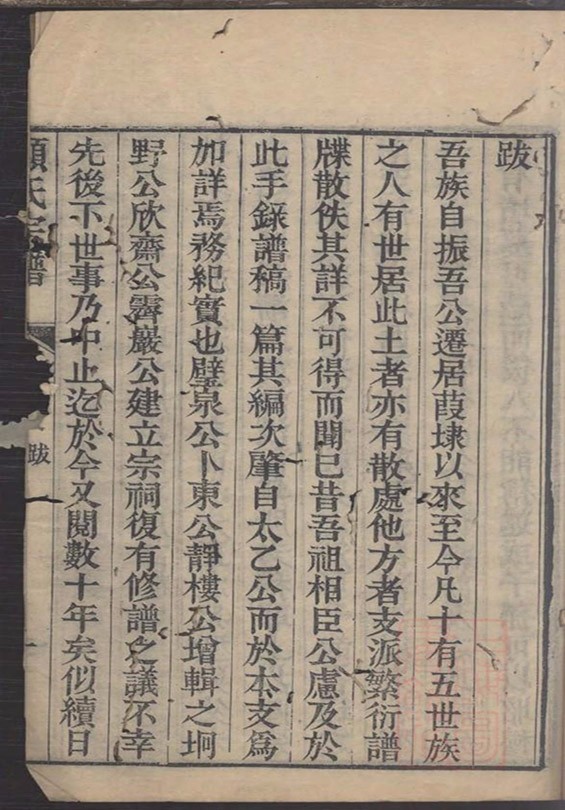 跋
吾族自振吾公遷居葭埭以來至今凡十有五世族
之人有世居此土者亦有散處他方者支派繁衍譜
牒散佚其詳不可得而聞已昔吾祖相臣公慮及於
此手錄譜稿一篇其編次肇自太乙公而於本支爲
加詳焉務紀實也璧泉公卜東公靜樓公增輯之坰
野公欣齋公霽巖公建立宗祠復有修譜之議不幸
先後下世事乃中止迄於今又閱數十年矣似續日
氏 譜
跋